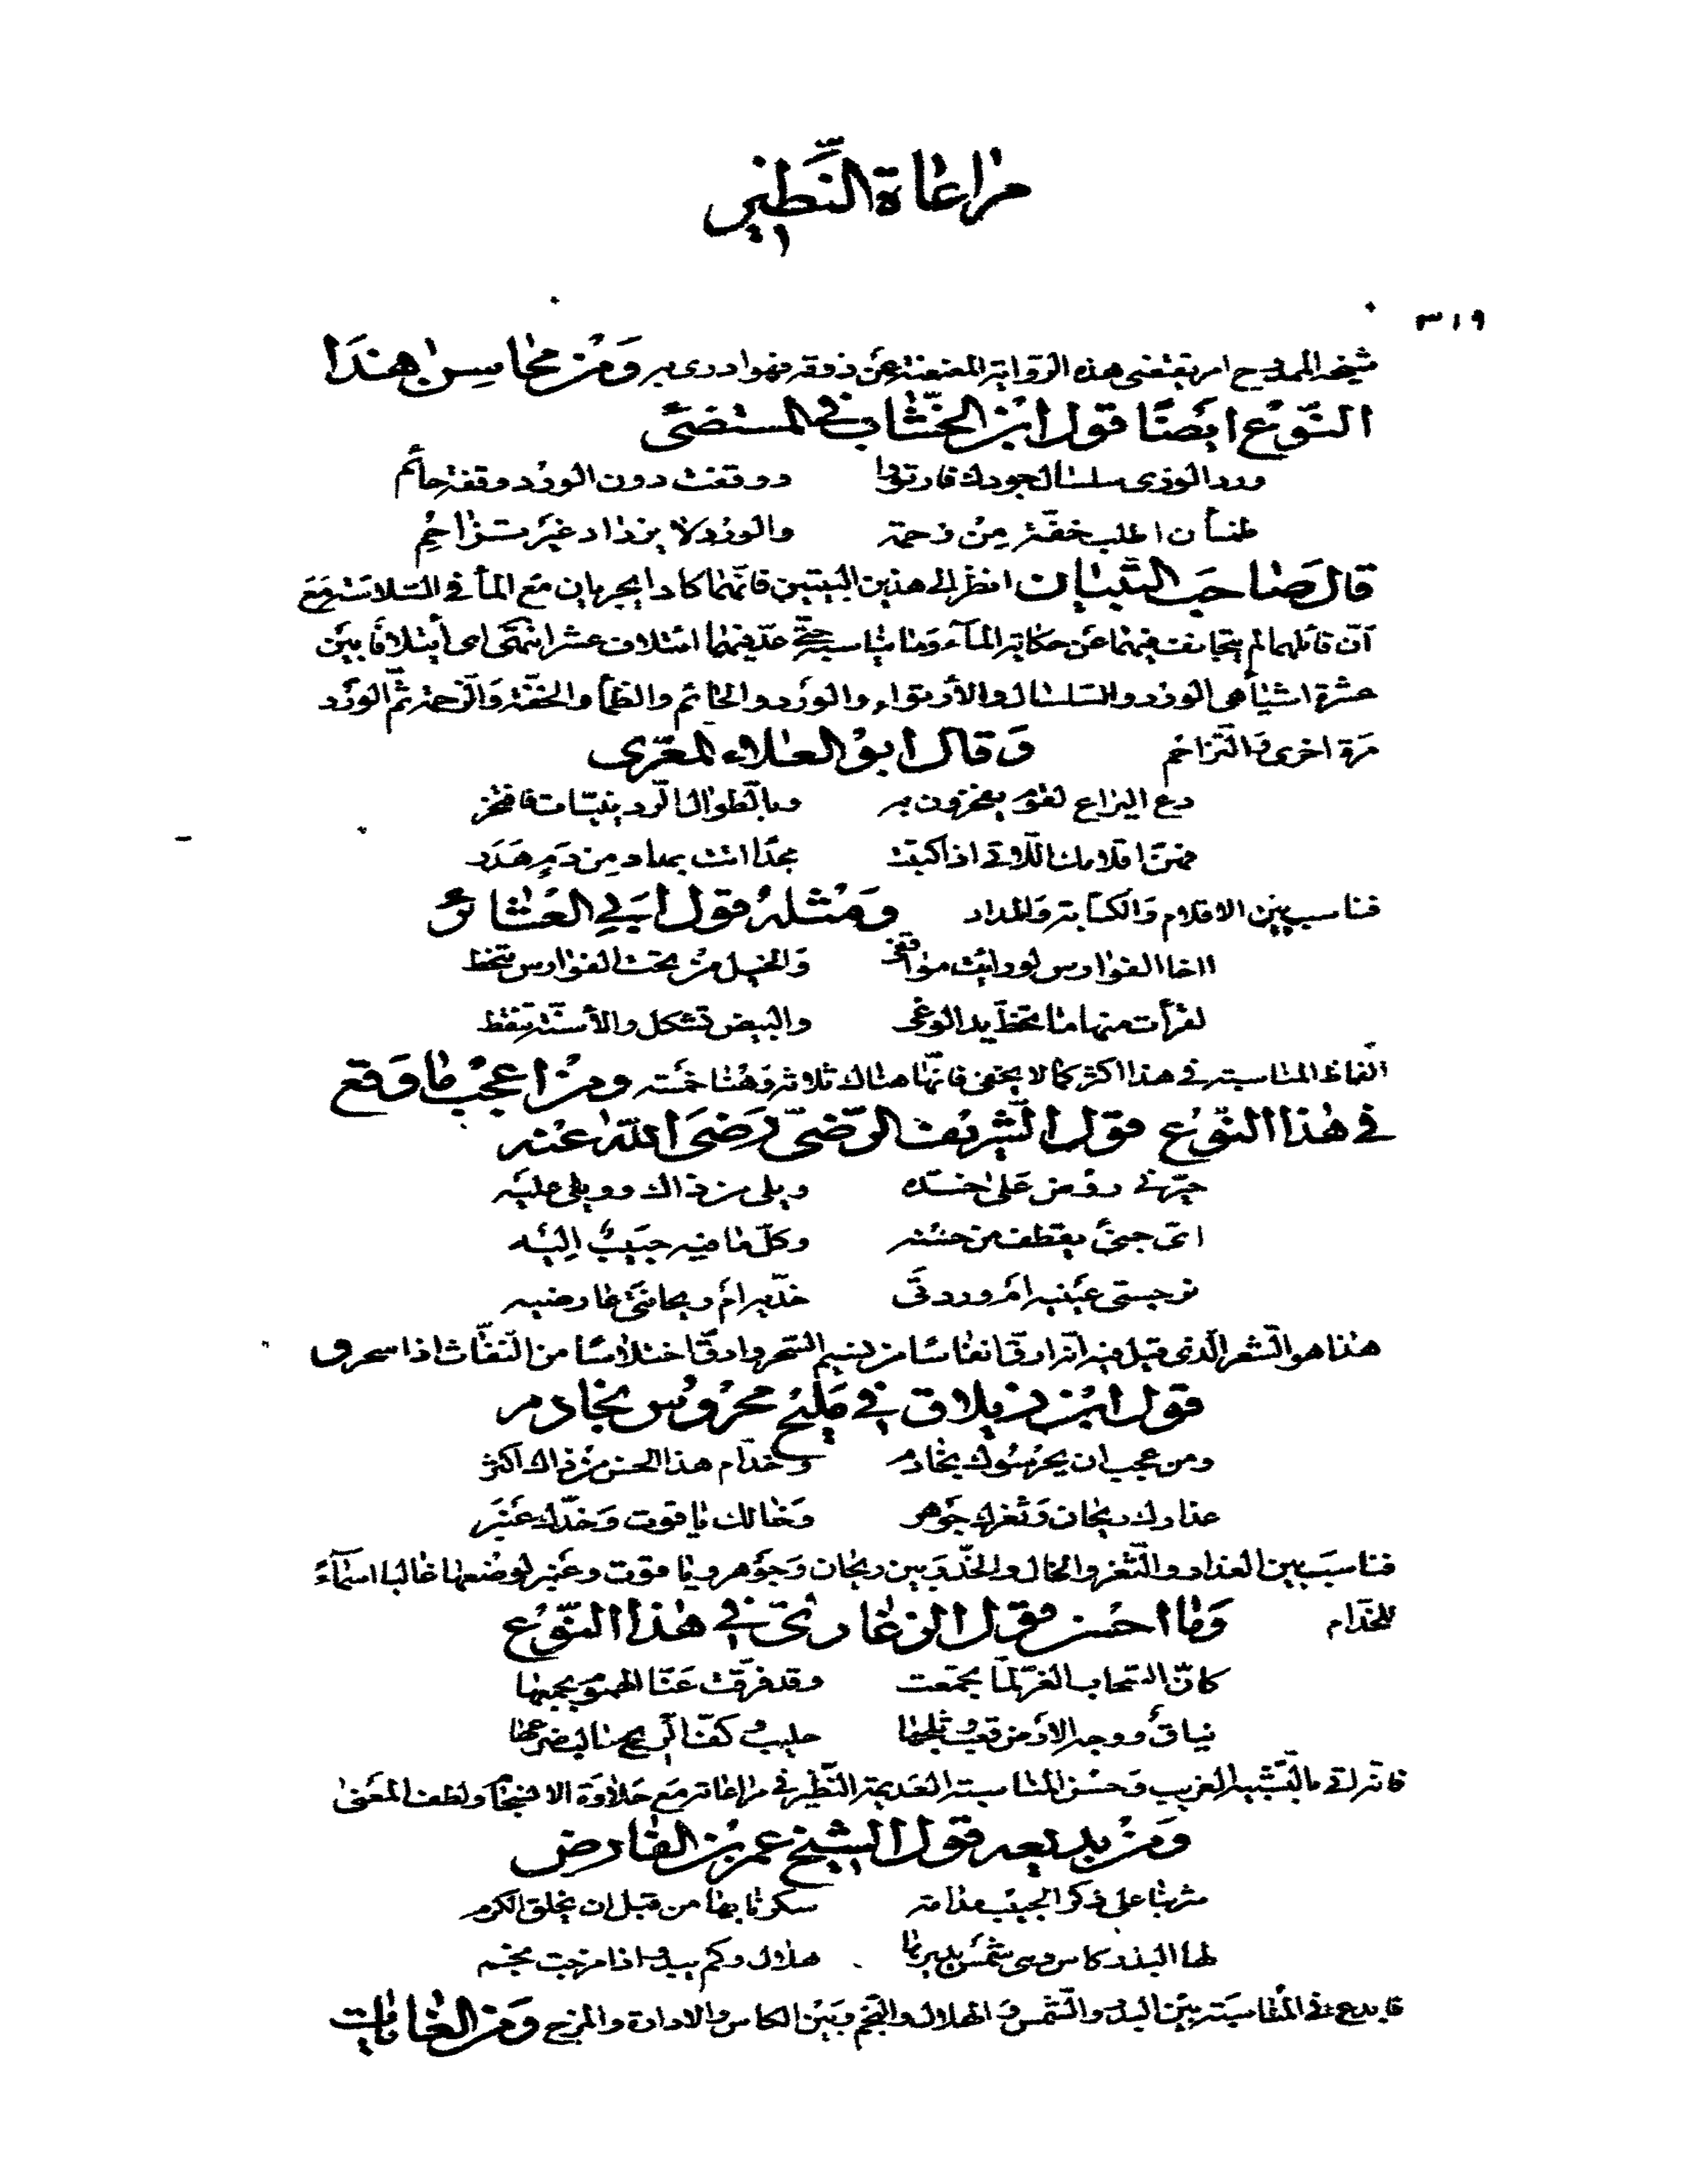 مراعاة النّظير
٣١٩
شيخه الممدوح امر يقتضى هذه الرّواية المضعنة عن ذوقه فهو ادرى به وَمِنْ محاسِن هذَا
النّوْع ايضًا قول ابن الخشّاب في المستضئ
ورد الورى سلسال جودك فارتووا وَوقفت دون الورْد وقفة حائم
ظمأن اطلب خفّة مِنْ زحمة والورْد لا يزداد غيْر تزاحُم
قال صَاحبُ التّبيَان انظر الى هذين البيتين فانّهما كادا يجريان مَع المأ في السّلاسَة مَعَ
انّ قائلهما لم يتجانف فيهما عَن حكاية المآء وَما يناسبه حتّى عدّ فيهما ائتلاف عشر انتهى اى أيتلافًا بيْن
عشرة اشياء هى الورْد والسّلسال والأرتواء والورْد والحائم والظمأ والخفّة وَالزّحمة ثمّ الورْد
مَرة اخرى وَالتّزاحُم وَقال ابوُ العلاء المعَرّى
دع اليراع لقوْم يفخرون به وبالطوال الرّدينيّات فافخر
فهنّ اقلامك اللّاتى اذا كتبت مجدًا اتت بمداد مِن دَمٍ هَدَر
فناسب بيْن الاقلام وَالكتابة وَالمداد وَمثله قول ابي العَشائر
ااخا الفوارس لو رايْت مواقفى وَالخيل مِنْ تحت الفوارس تنحط
لقرأت منها ما تخطّ يد الوغى والبيض تشكل والأسنّة تنقط
الفاظ المناسبة في هذا اكثر كما لا يخفى فانّها هناك ثلاثة وَهُنا خمسَة ومِنْ اعجب ما وَقع
في هٰذا النّوْع قول الشّريف الرّضىّ رَضىَ اللّٰه عنه
حيّرنى روْض عَلى خدّه ويلى من ذاك وويلى عليْه
اىّ جنىً يقطف من حسْنه وكلّ ما فيه حبَيبٌ اِليْه
نرجستى عيْنيه امْ وردتى خدّيه امْ ريحانتىْ عارضيه
هٰذا هو الشّعر الّذى قيل فيه انّه ارقّ انفاسًا من نسيم السّحر وادقّ اختلاسًا من النّفّاث اذا سحر و
قول ابن زيلاق في مليْح محرُوس بخادم
ومن عجب ان يحرسُوك بخادم وخدّام هذا الحسن مِنْ ذاك اكثر
عذارك ريحان وَثغرك جَوْهر وَخالك ياقوت وَخدّك عَنبر
فناسَب بين العذار والثّغر والخال والخدّ وَبين ريحان وَجوْهر وياقوت وعنبر لوضعها غالبا اسمآء
للخدّام وَما احسن قول الزغارىّ في هٰذا النّوْع
كانّ السّحاب الغرّ لمّا تجمّعت وقد فرّقت عَنّا الهموم بجمعها
نياقٌ ووجه الارْض قعب وثلجها حليب وكفّ الرّيح حالب ضرعها
فانّه اتى بالتّشبيه الغريب وَحسْن المناسبة العديمة النّظير في مراعاته مَع حَلاوَة الانسجام ولطف المعْنى
وَمنْ بديعه قول الشيْخ عمر بْن الفارض
شربنا على ذكر الحبيْب مدامة سكرنا بها من قبل ان يخلق الكرم
لها البدر كاس وهى شمْس يديرها هلال وكم يبدو اذا مزجت نجم
فابدع في المناسَبة بيْن البدْر والشّمس وَ الهلال والنّجم وَبيْن الكاس والادارة والمزج وَمن الغايات